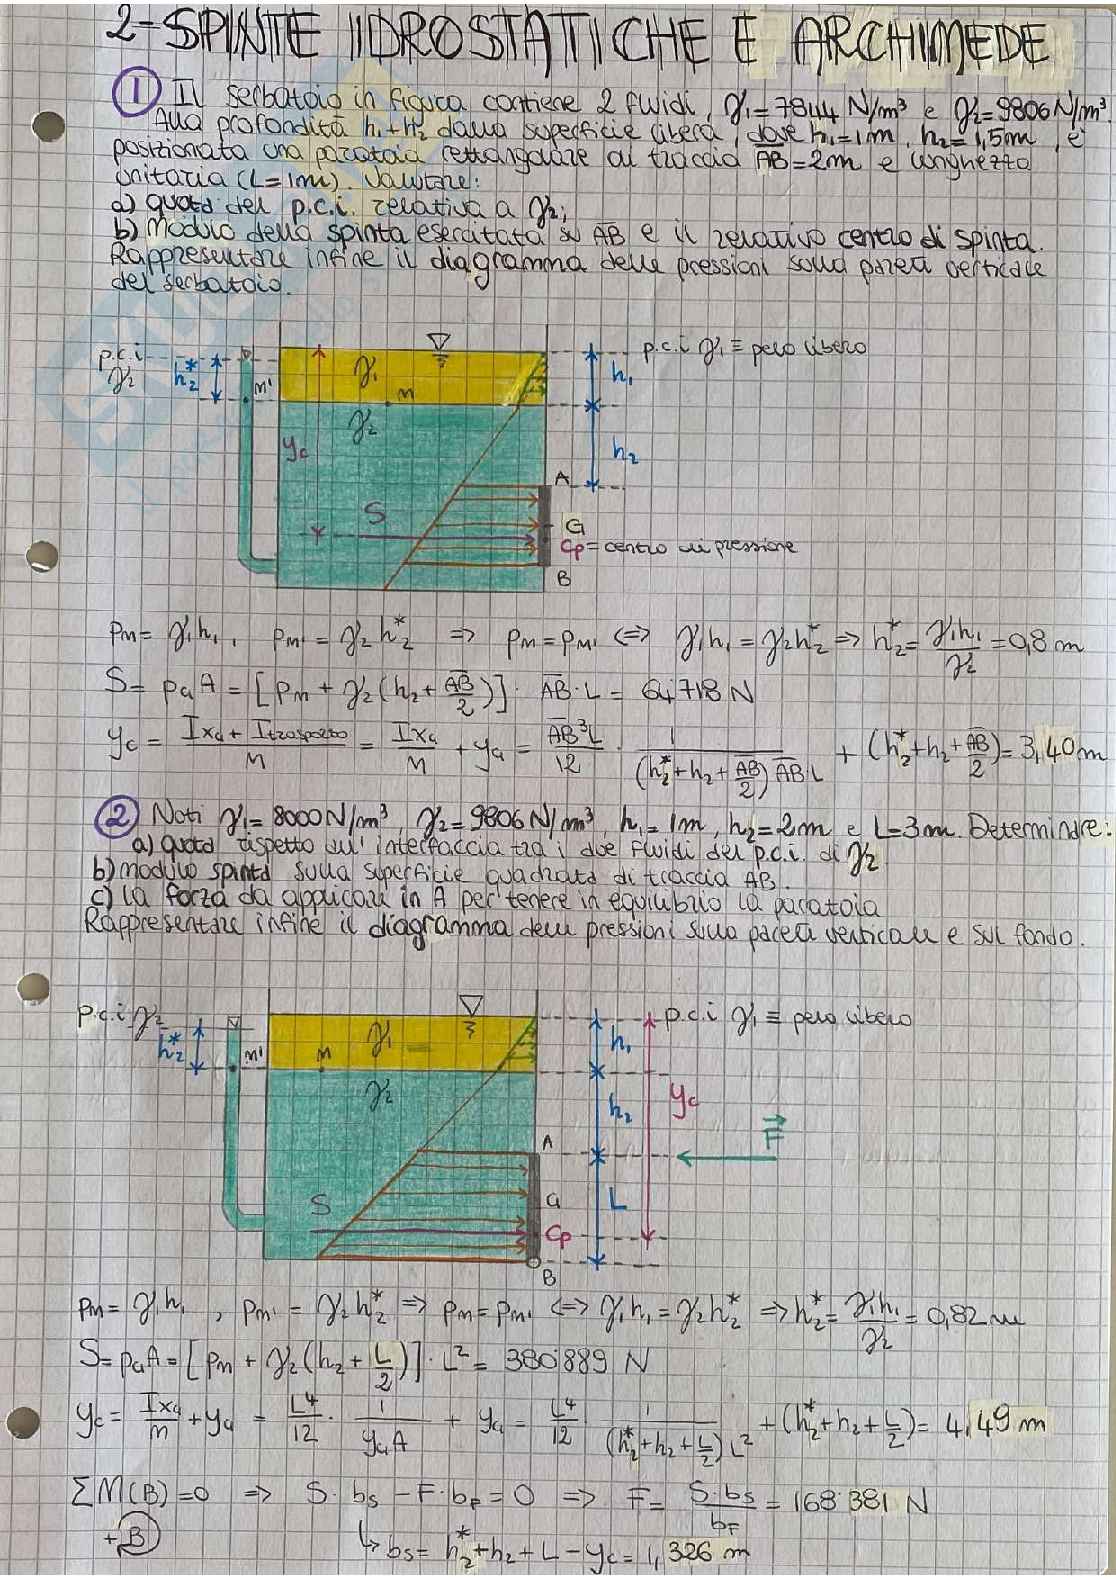 2-SPINTE IDROSTATICHE E ARCHIMEDE
1 Il serbatoio in figura contiene 2 fluidi, γ1=7844 N/m³ e γ2=9806N/m³.
Alla profondità h1+h2 dalla superficie libera, dove h1=1m, h2=1,5m, è
posizionata una paratoia rettangolare di traccia AB=2m e lunghezza
unitaria (L=1m). Valutare:
a) quota del p.c.i. relativa a γ2;
b) Modulo della spinta esercitata su AB e il relativo centro di spinta.
Rappresentare infine il diagramma delle pressioni sulla parete verticale
del serbatoio.
p.c.i γ2
h2*
M'
γ1
M
γ2
yc
S
p.c.i γ1 ≡ pelo libero
h1
h2
A
G
Cp=centro di pressione
B
pM= γ1h1, pM' = γ2 h2* => pM=pM' <=> γ1h1=γ2h2* => h2*= γ1h1/γ2 =0,8 m
S= pGA = [pM + γ2(h2+AB/2)]· AB·L = 64718 N
yc = (IxG + Itrasporto)/M = IxG/M + yG = AB³L/12 · 1/((h2*+h2+AB/2)AB·L + (h2*+h2+AB/2)= 3,40m
2 Noti γ1=8000N/m³, γ2=9806N/m³, h1=1m, h2=2m e L=3m. Determinare:
a) quota rispetto all'interfaccia tra i due fluidi del p.c.i. di γ2
b) modulo spinta sulla superficie quadrata di traccia AB.
c) la forza da applicare in A per tenere in equilibrio la paratoia
Rappresentare infine il diagramma delle pressioni sulla parete verticale e sul fondo.
p.c.i γ2
h2*
M'
γ1
M
γ2
S
p.c.i γ1 ≡ pelo libero
h1
h2
yc
F
A
G
L
Cp
B
pM= γ1h1, pM' = γ2 h2* => pM=pM' <=> γ1h1=γ2h2* => h2*= γ1h1/γ2 = 0,82 m
S=pGA=[pM + γ2(h2+L/2)]·L²= 380889 N
yc= IxG/M + yG = L⁴/12 · 1/yGA + yG = L⁴/12 1/((h2*+h2+L/2)L² +(h2*+h2+L/2)= 4,49 m
ΣM(B)=0 => S·bs -F·bF=0 => F= S·bs/bF = 168'381 N
+B
↳ bs= h2*+h2+L-yc=1,326 m